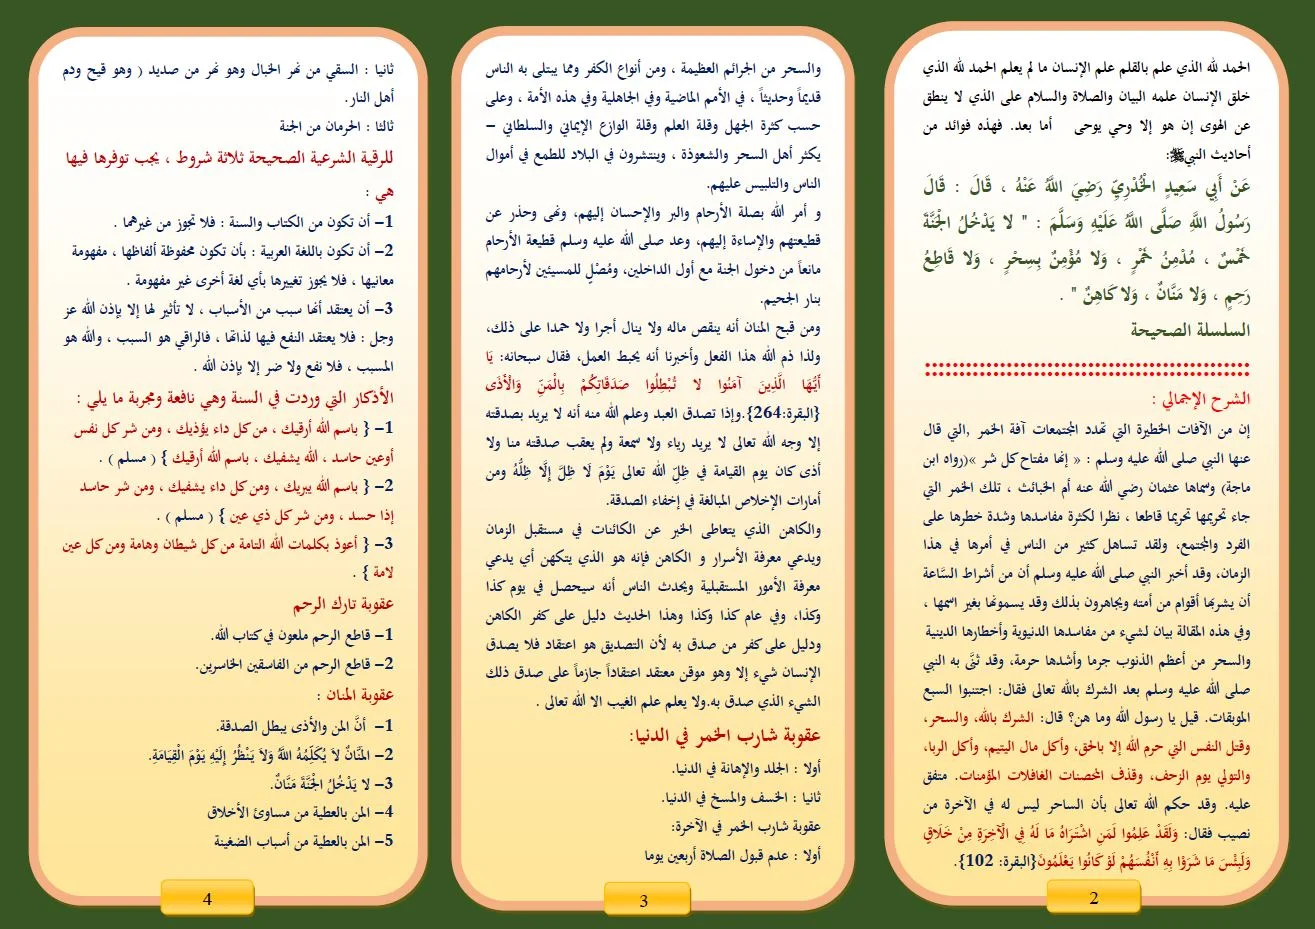 الحمد لله الذي علم بالقلم علم الإنسان ما لم يعلم الحمد لله الذي
خلق الإنسان علمه البيان والصلاة والسلام على الذي لا ينطق
عن الهوى إن هو إلا وحي يوحى أما بعد. فهذه فوائد من
أحاديث النبيﷺ:
عَنْ أَبِي سَعِيدٍ الْخُدْرِيِّ رَضِيَ اللَّهُ عَنْهُ ، قَالَ : قَالَ
رَسُولُ اللَّهِ صَلَّى اللَّهُ عَلَيْهِ وَسَلَّمَ : " لا يَدْخُلُ الْجَنَّةَ
خَمْسٌ ، مُدْمِنُ خَمْرٍ ، وَلا مُؤْمِنٌ بِسِحْرٍ ، وَلا قَاطِعُ
رَحِمٍ ، وَلا مَنَّانٌ ، وَلا كَاهِنٌ " .
السلسلة الصحيحة
الشرح الإجمالي :
إن من الآفات الخطيرة التي تهدد المجتمعات آفة الخمر ,التي قال
عنها النبي صلى الله عليه وسلم : « إنها مفتاح كل شر »(رواه ابن
ماجة) وسماها عثمان رضي الله عنه أم الخبائث ، تلك الخمر التي
جاء تحريمها تحريما قاطعا ، نظرا لكثرة مفاسدها وشدة خطرها على
الفرد والمجتمع، ولقد تساهل كثير من الناس في أمرها في هذا
الزمان، وقد أخبر النبي صلى الله عليه وسلم أن من أشراط السَّاعة
أن يشربها أقوام من أمته ويجاهرون بذلك وقد يسمونها بغير اسمها ،
وفي هذه المقالة بيان لشيء من مفاسدها الدنيوية وأخطارها الدينية
والسحر من أعظم الذنوب جرما وأشدها حرمة، وقد ثنَّى به النبي
صلى الله عليه وسلم بعد الشرك بالله تعالى فقال: اجتنبوا السبع
الموبقات. قيل يا رسول الله وما هن؟ قال: الشرك بالله، والسحر،
وقتل النفس التي حرم الله إلا بالحق، وأكل مال اليتيم، وأكل الربا،
والتولي يوم الزحف، وقذف المحصنات الغافلات المؤمنات. متفق
عليه. وقد حكم الله تعالى بأن الساحر ليس له في الآخرة من
نصيب فقال: وَلَقَدْ عَلِمُوا لَمَنِ اشْتَرَاهُ مَا لَهُ فِي الْآخِرَةِ مِنْ خَلَاقٍ
وَلَبِئْسَ مَا شَرَوْا بِهِ أَنْفُسَهُمْ لَوْ كَانُوا يَعْلَمُونَ{البقرة: 102}.
2
والسحر من الجرائم العظيمة ، ومن أنواع الكفر ومما يبتلى به الناس
قديماً وحديثاً ، في الأمم الماضية وفي الجاهلية وفي هذه الأمة ، وعلى
حسب كثرة الجهل وقلة العلم وقلة الوازع الإيماني والسلطاني –
يكثر أهل السحر والشعوذة ، وينتشرون في البلاد للطمع في أموال
الناس والتلبيس عليهم.
و أمر الله بصلة الأرحام والبر والإحسان إليهم، ونهى وحذر عن
قطيعتهم والإساءة إليهم، وعد صلى الله عليه وسلم قطيعة الأرحام
مانعاً من دخول الجنة مع أول الداخلين، ومُصْلٍ للمسيئين لأرحامهم
بنار الجحيم.
ومن قبح المنان أنه ينقص ماله ولا ينال أجرا ولا حمدا على ذلك،
ولذا ذم الله هذا الفعل وأخبرنا أنه يحبط العمل، فقال سبحانه: يَا
أَيُّهَا الَّذِينَ آمَنُوا لا تُبْطِلُوا صَدَقَاتِكُمْ بِالْمَنِّ وَالْأَذَى
{البقرة:264}.وإذا تصدق العبد وعلم الله منه أنه لا يريد بصدقته
إلا وجه الله تعالى لا يريد رياء ولا سمعة ولم يعقب صدقته منا ولا
أذى كان يوم القيامة في ظِلِّ الله تعالى يَوْمَ لَا ظِلَّ إِلَّا ظِلُّهُ ومن
أمارات الإخلاص المبالغة في إخفاء الصدقة.
والكاهن الذي يتعاطى الخبر عن الكائنات في مستقبل الزمان
ويدعي معرفة الأسرار و الكاهن فإنه هو الذي يتكهن أي يدعي
معرفة الأمور المستقبلية ويحدث الناس أنه سيحصل في يوم كذا
وكذا، وفي عام كذا وكذا وهذا الحديث دليل على كفر الكاهن
ودليل على كفر من صدق به لأن التصديق هو اعتقاد فلا يصدق
الإنسان شيء إلا وهو موقن معتقد اعتقاداً جازماً على صدق ذلك
الشيء الذي صدق به.ولا يعلم علم الغيب الا الله تعالى .
عقوبة شارب الخمر في الدنيا:
أولا : الجلد والإهانة في الدنيا.
ثانيا : الخسف والمسخ في الدنيا.
عقوبة شارب الخمر في الآخرة:
أولا : عدم قبول الصلاة أربعين يوما
3
ثانيا : السقي من نهر الخبال وهو نهر من صديد ( وهو قيح ودم
أهل النار.
ثالثا : الحرمان من الجنة
للرقية الشرعية الصحيحة ثلاثة شروط ، يجب توفرها فيها
هي :
1– أن تكون من الكتاب والسنة : فلا تجوز من غيرهما .
2– أن تكون باللغة العربية : بأن تكون محفوظة ألفاظها ، مفهومة
معانيها ، فلا يجوز تغييرها بأي لغة أخرى غير مفهومة .
3– أن يعتقد أنها سبب من الأسباب ، لا تأثير لها إلا بإذن الله عز
وجل : فلا يعتقد النفع فيها لذاتها ، فالراقي هو السبب ، والله هو
المسبب ، فلا نفع ولا ضر إلا بإذن الله .
الأذكار التي وردت في السنة وهي نافعة ومجربة ما يلي :
1– { باسم الله أرقيك ، من كل داء يؤذيك ، ومن شر كل نفس
أوعين حاسد ، الله يشفيك ، باسم الله أرقيك } ( مسلم ) .
2– { باسم الله يبريك ، ومن كل داء يشفيك ، ومن شر حاسد
إذا حسد ، ومن شر كل ذي عين } ( مسلم ) .
3– { أعوذ بكلمات الله التامة من كل شيطان وهامة ومن كل عين
لامة } .
عقوبة تارك الرحم
1– قاطع الرحم ملعون في كتاب الله.
2– قاطع الرحم من الفاسقين الخاسرين.
عقوبة المنان :
1– أنَّ المن والأذى يبطل الصدقة.
2– المَنَّانُ لاَ يُكَلِّمُهُ اللَّهُ وَلاَ يَنْظُرُ إِلَيْهِ يَوْمَ الْقِيَامَةِ.
3– لا يَدْخُلُ الْجَنَّةَ مَنَّانٌ.
4– المن بالعطية من مساوئ الأخلاق
5– المن بالعطية من أسباب الضغينة
4